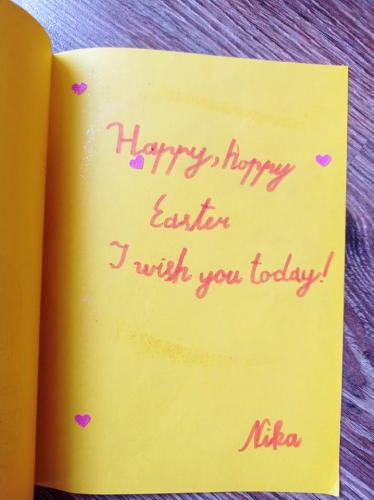 Happy, hoppy
Easter
I wish you today!
Nika